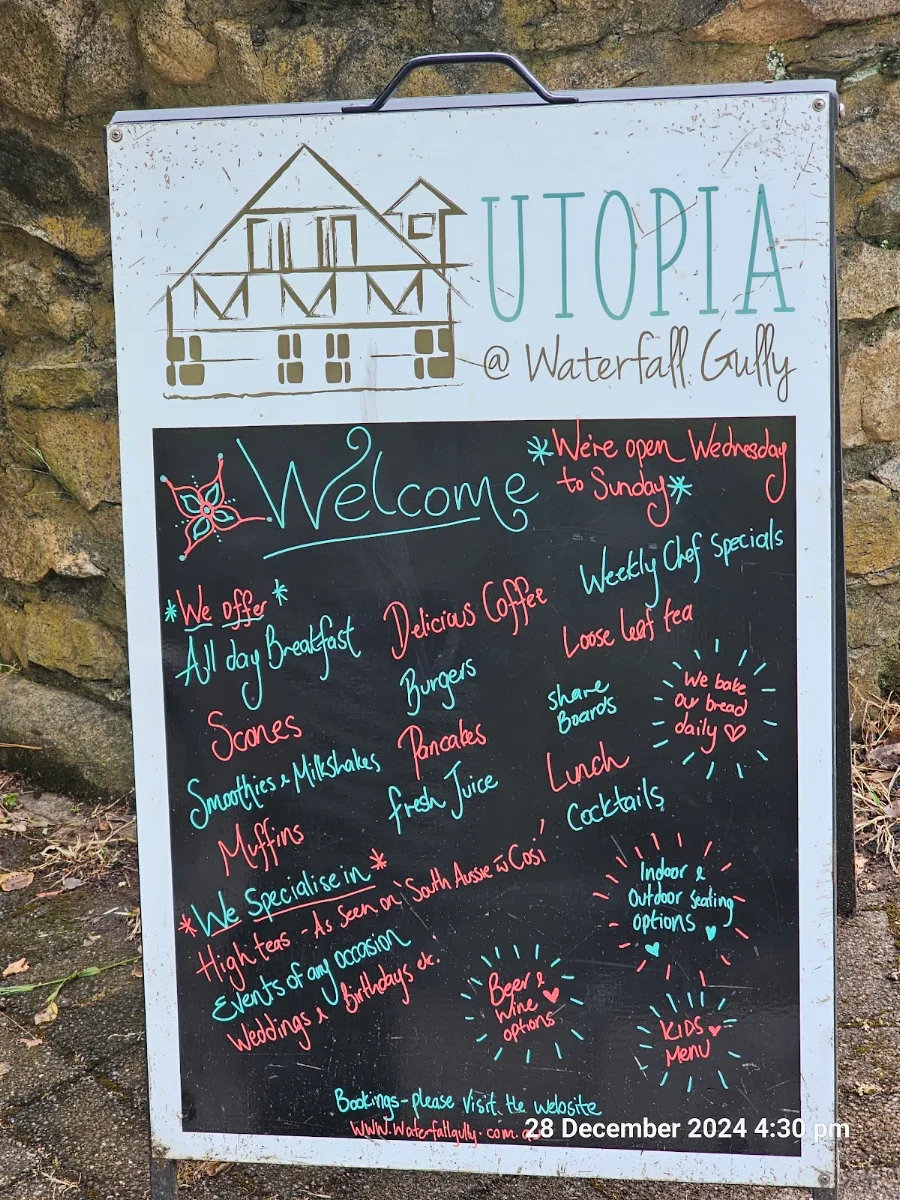 UTOPIA
@ Waterfall Gully
Welcome
*We're open Wednesday
to Sunday*
*We offer*
All day Breakfast
Scones
Smoothies & Milkshakes
Muffins
Delicious Coffee
Burgers
Pancakes
fresh Juice
Weekly Chef Specials
Loose leaf tea
share
Boards
Lunch
Cocktails
We bake
our bread
daily ♡
*We Specialise in*
High teas - As Seen on 'South Aussie w̄ Cosi'
Events of any occasion
Weddings & Birthdays etc.
Indoor &
Outdoor Seating
options
Beer &
Wine ♥
options
KIDS ♥
Menu
Bookings - please visit the website
www.waterfallgully.com.au
28 December 2024 4:30 pm